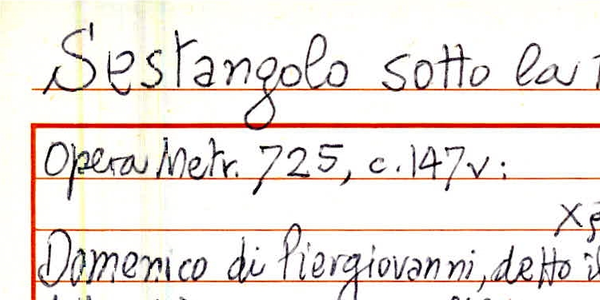 Sestangolo sotto la
Opera Metr. 725, c. 147v:
Domenico di Piergiovanni, detto il